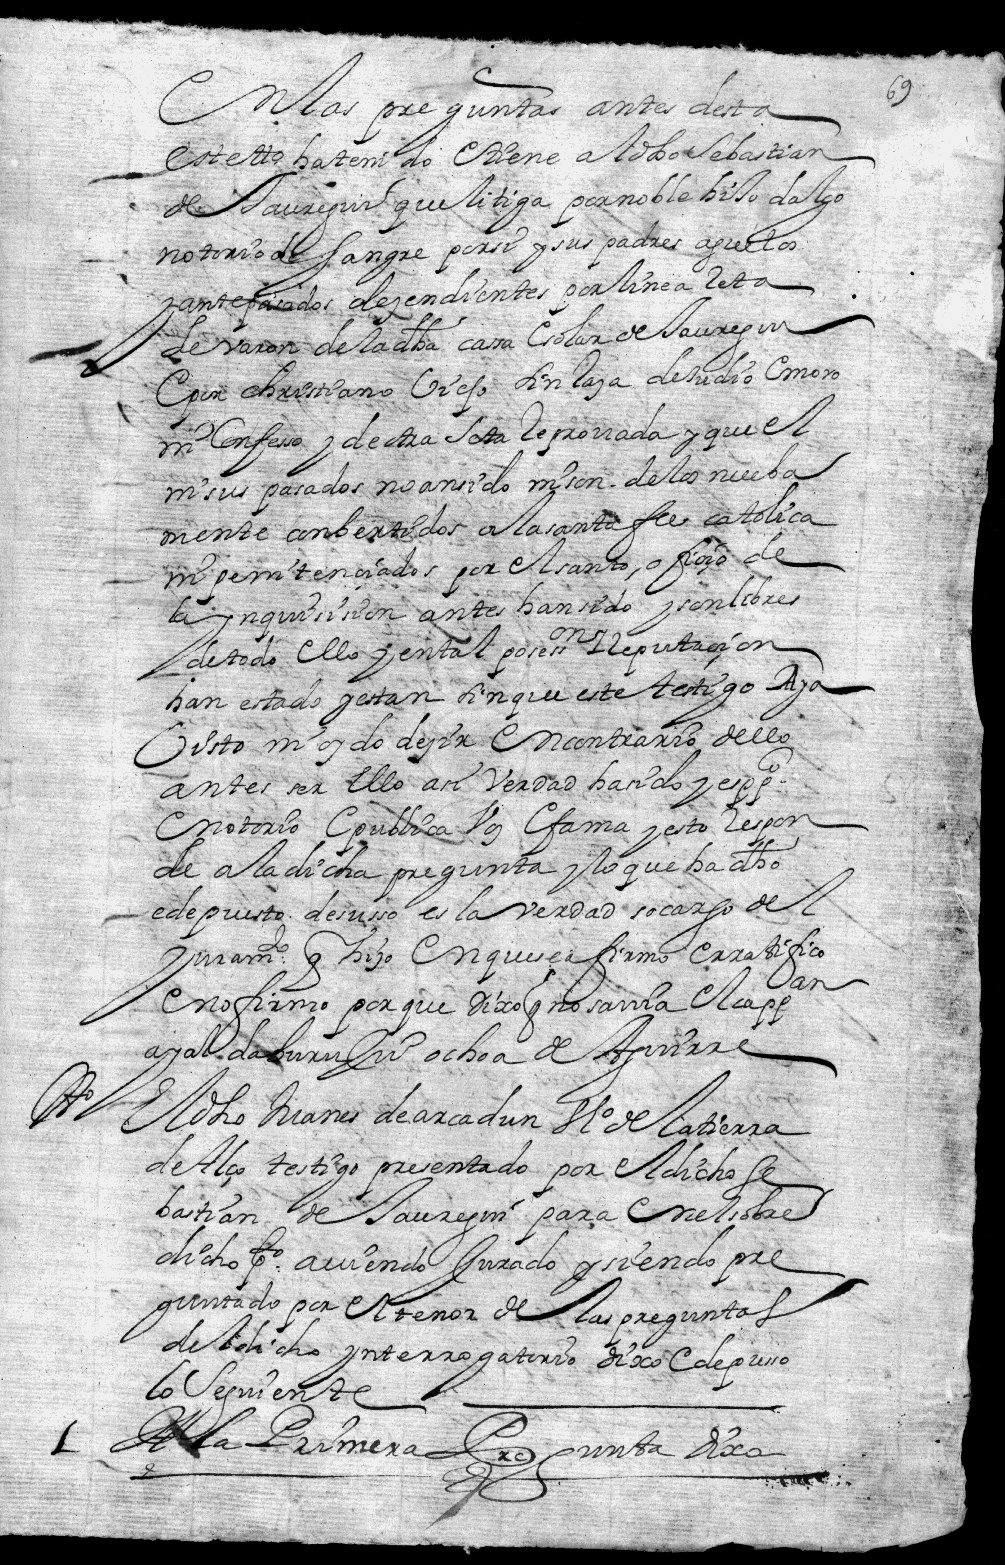 69
En las preguntas antes desta
este tto ha tenido e tiene al dho Sebastian
de Jauregui que litiga por noble hijo dalgo
notorio de sangre por si y sus padres aguelos
y antepasados dezendientes por linea reta
de varon de la dha casa e solar de Jauregui
e por christiano viejo sin raza de judio e moro
ni confesso y de otra seta reprovada y que el
ni sus pasados no an sido ni son de los nueba
mente conbertidos a la santa fee catolica
ni penitenciados por el santo oficio de
la ynquisision antes han sido y son libres
de todo ello y en tal posesion y reputacion
han estado y estan sin que este testigo aya
visto ni oydo dezir en contrario dello
antes ser ello asi verdad ha sido y es ppco
e notorio e publica voz e fama y esto respon
de a la dicha pregunta y lo que ha dho
e depuesto desusso es la verdad so cargo del
juramto q hizo en que se afirmo e rratifico
e no firmo por que dixo q no savia
ochoa de Aguirre
tto El dho Juanes de arcadun vzo de la tierra
de Alço testigo presentado por el dicho Se
bastian de Jauregui para en el sobre
dicho pto aviendo jurado y siendo pre
guntado por el tenor de las preguntas
del dicho ynterrogatorio dixo e depusso
lo seguiente
1 A la Primera Pregunta dixo